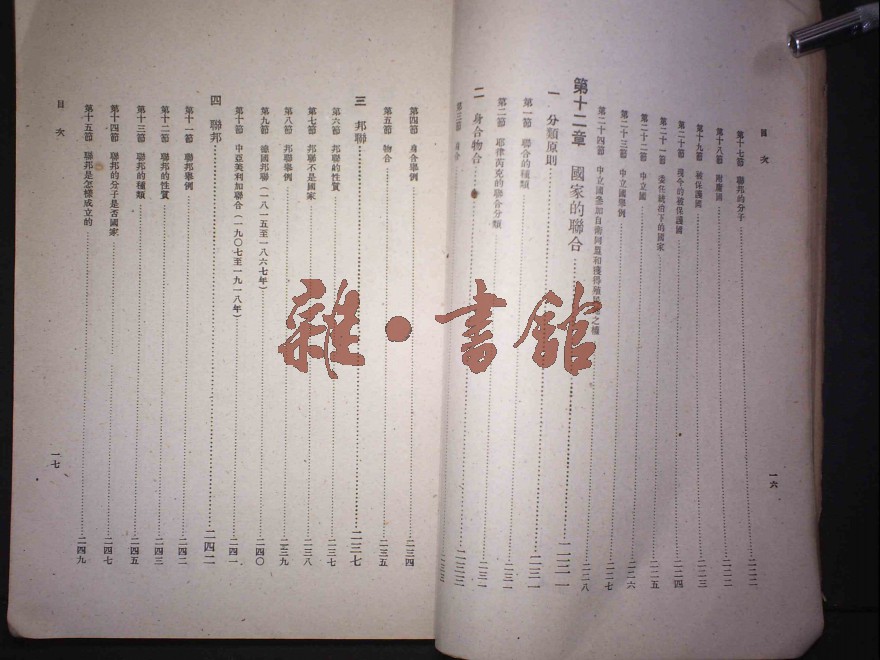 目次
第十七節 聯邦的分子 二二二
第十八節 附庸國 二二二
第十九節 被保護國 二二三
第二十節 現今的被保護國 二二四
第二十一節 委任統治下的國家 二二五
第二十二節 中立國 二二六
第二十三節 中立國舉例 二二七
第二十四節 中立國參加自衛同盟和獲得殖民地之權 二二八
第十二章 國家的聯合 二三一
一 分類原則 二三一
第一節 聯合的種類 二三一
第二節 耶律芮克的聯合分類 二三一
二 身合物合 二三三
第三節 身合
一六
第四節 身合舉例 二三四
第五節 物合 二三五
三 邦聯 二三七
第六節 邦聯的性質 二三七
第七節 邦聯不是國家 二三八
第八節 邦聯舉例 二三九
第九節 德國邦聯(一八一五至一八六七年) 二四〇
第十節 中亞美利加聯合(一九〇七至一九一八年) 二四一
四 聯邦 二四二
第十一節 聯邦舉例 二四二
第十二節 聯邦的性質 二四三
第十三節 聯邦的種類 二四五
第十四節 聯邦的分子是否國家 二四七
第十五節 聯邦是怎樣成立的 二四九
目次
一七
雜·書館